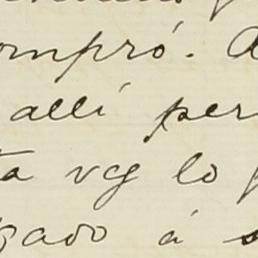 ompró. A
allí per
ta vcg lo
gado á s